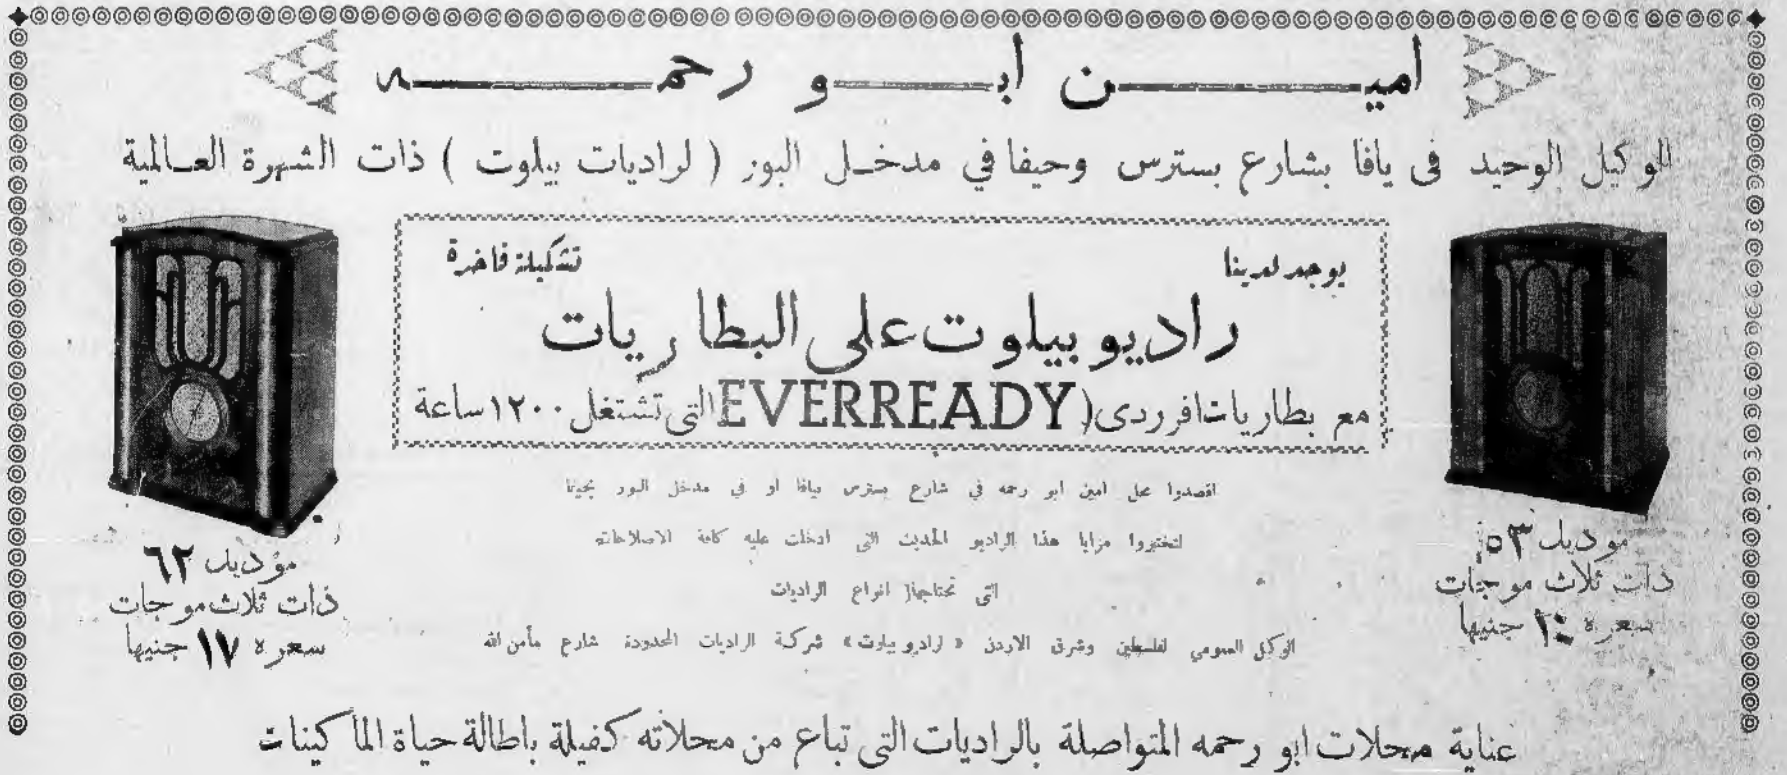 امين ابو رحمه
الوكيل الوحيد فى يافا بشارع بسترس وحيفا في مدخل البور ( لراديات بيلوت ) ذات الشهرة العالمية
يوجد لدينا
تشكيلة فاخرة
راديو بيلوت على البطاريات
مع بطاريات افرردى (EVERREADY التى تشتغل ١٢٠٠ ساعة
اقصدوا محل امين ابو رحمه في شارع بسترس بيافا او في مدخل البور بحيفا
لتختبروا مزايا هذا الراديو الحديث التى ادخلت عليه كافة الاصلاحات
التى تحتاجها انواع الراديات
الوكيل العمومي لفلسطين وشرق الاردن « لراديو بيلوت » شركة الراديات المحدودة شارع مأمن الله
موديل ٥٣
ذات ثلاث موجات
سعره جنيها
موديل ٦٢
ذات ثلاث موجات
سعره ١٧ جنيها
عناية محلات ابو رحمه المتواصلة بالراديات التى تباع من محلاته كفيلة باطالة حياة الماكينات